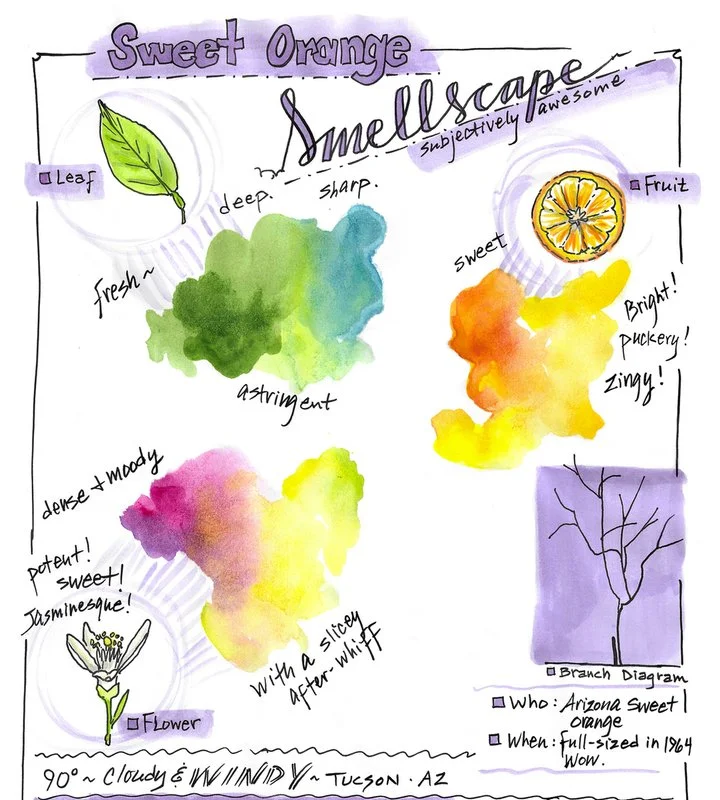 Sweet Orange
Smellscape
subjectively awesome
Leaf
deep.
sharp.
fresh~
astringent
Fruit
sweet
Bright!
puckery!
zingy!
dense & moody
potent!
sweet!
Jasminesque!
with a slicey
after-whiff
Flower
Branch Diagram
Who: Arizona Sweet
orange
When: full-sized in 1964
Wow.
90° ~ Cloudy & WINDY ~ TUCSON · AZ